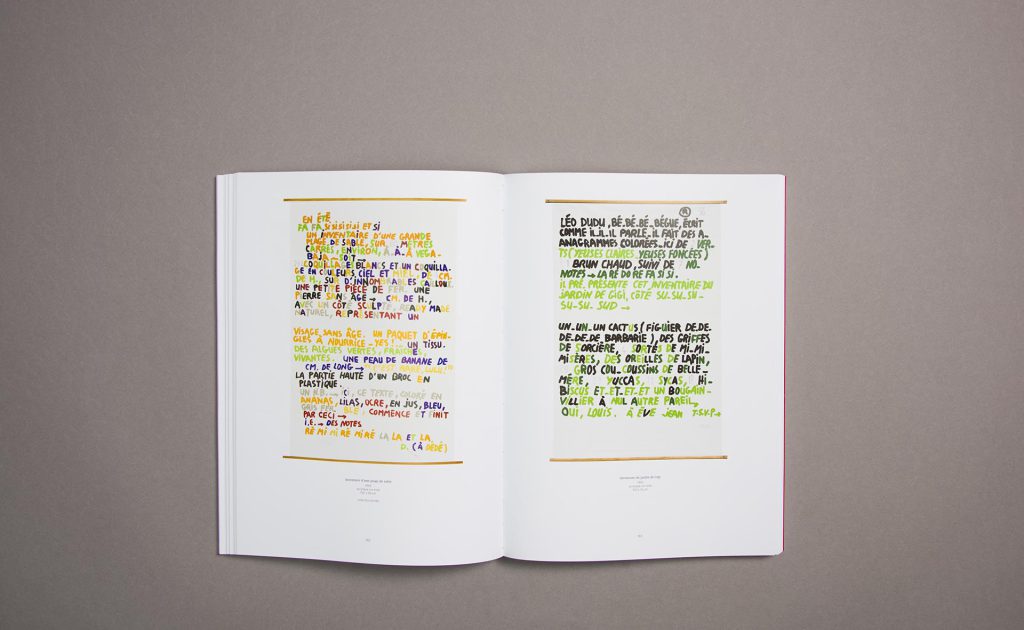 EN ÉTÉ
FA FA SI SI SI SI SI ET SI
UN INVENTAIRE D'UNE GRANDE
PLAGE DE SABLE, SUR MÈTRES
CARRÉS, ENVIRON, À..À..À VEGA-
BAJA SOIT →
COQUILLAGES BLANCS ET UN COQUILLA-
GE EN COULEURS, CIEL ET MIEL, DE CM.
DE H., SUR D'INNOMBRABLES CAILLOUX.
UNE PETITE PIÈCE DE FER. UNE
PIERRE SANS ÂGE → CM. DE H.,
AVEC UN CÔTÉ SCULPTÉ, READY MADE
NATUREL, REPRÉSENTANT UN
VISAGE SANS ÂGE. UN PAQUET D'ÉPIN-
GLES À NOURRICE - YES! .. UN TISSU.
DES ALGUES VERTES, FRAÎCHES,
VIVANTES. UNE PEAU DE BANANE DE
CM. DE LONG → "C'EST RARE, LULU!"
LA PARTIE HAUTE D'UN BROC EN
PLASTIQUE.
UN N.B. → ICI, CE TEXTE, COLORÉ EN
ANANAS, LILAS, OCRE, EN JUS, BLEU,
GRIS FER, BLÉ, COMMENCE ET FINIT
PAR CECI →
I.E. → DES NOTES
RÉ MI MI RÉ MI RÉ LA LA ET LA
D. (À DÉDÉ)
LÉO DUDU, BÉ.BÉ.BÉ_BÉGUE, ÉCRIT
COMME IL..IL..IL PARLE. IL FAIT DES A-
ANAGRAMMES COLORÉES_ICI DE VER-
TS (YEUSES CLAIRES, YEUSES FONCÉES)
BRUN CHAUD, SUIVI DE NO-
NOTES → LA RÉ DO RE FA SI SI.
IL PRÉ. PRÉSENTE CET INVENTAIRE DU
JARDIN DE GIGI, CÔTÉ SU_SU_SU_
SU_SU_SUD →
UN_UN_UN CACTUS (FIGUIER DE.DE.
DE.DE.DE BARBARIE), DES GRIFFES
DE SORCIÈRE, SORTES DE MI_MI_
MISÈRES, DES OREILLES DE LAPIN,
GROS COU_COUSSINS DE BELLE_
MÈRE, YUCCAS, SYCAS, HI-
BISCUS ET_ET_ET_ET UN BOUGAIN-
VILLIER À NUL AUTRE PAREIL,
OUI, LOUIS. À ÈVE JEAN T.S.V.P →